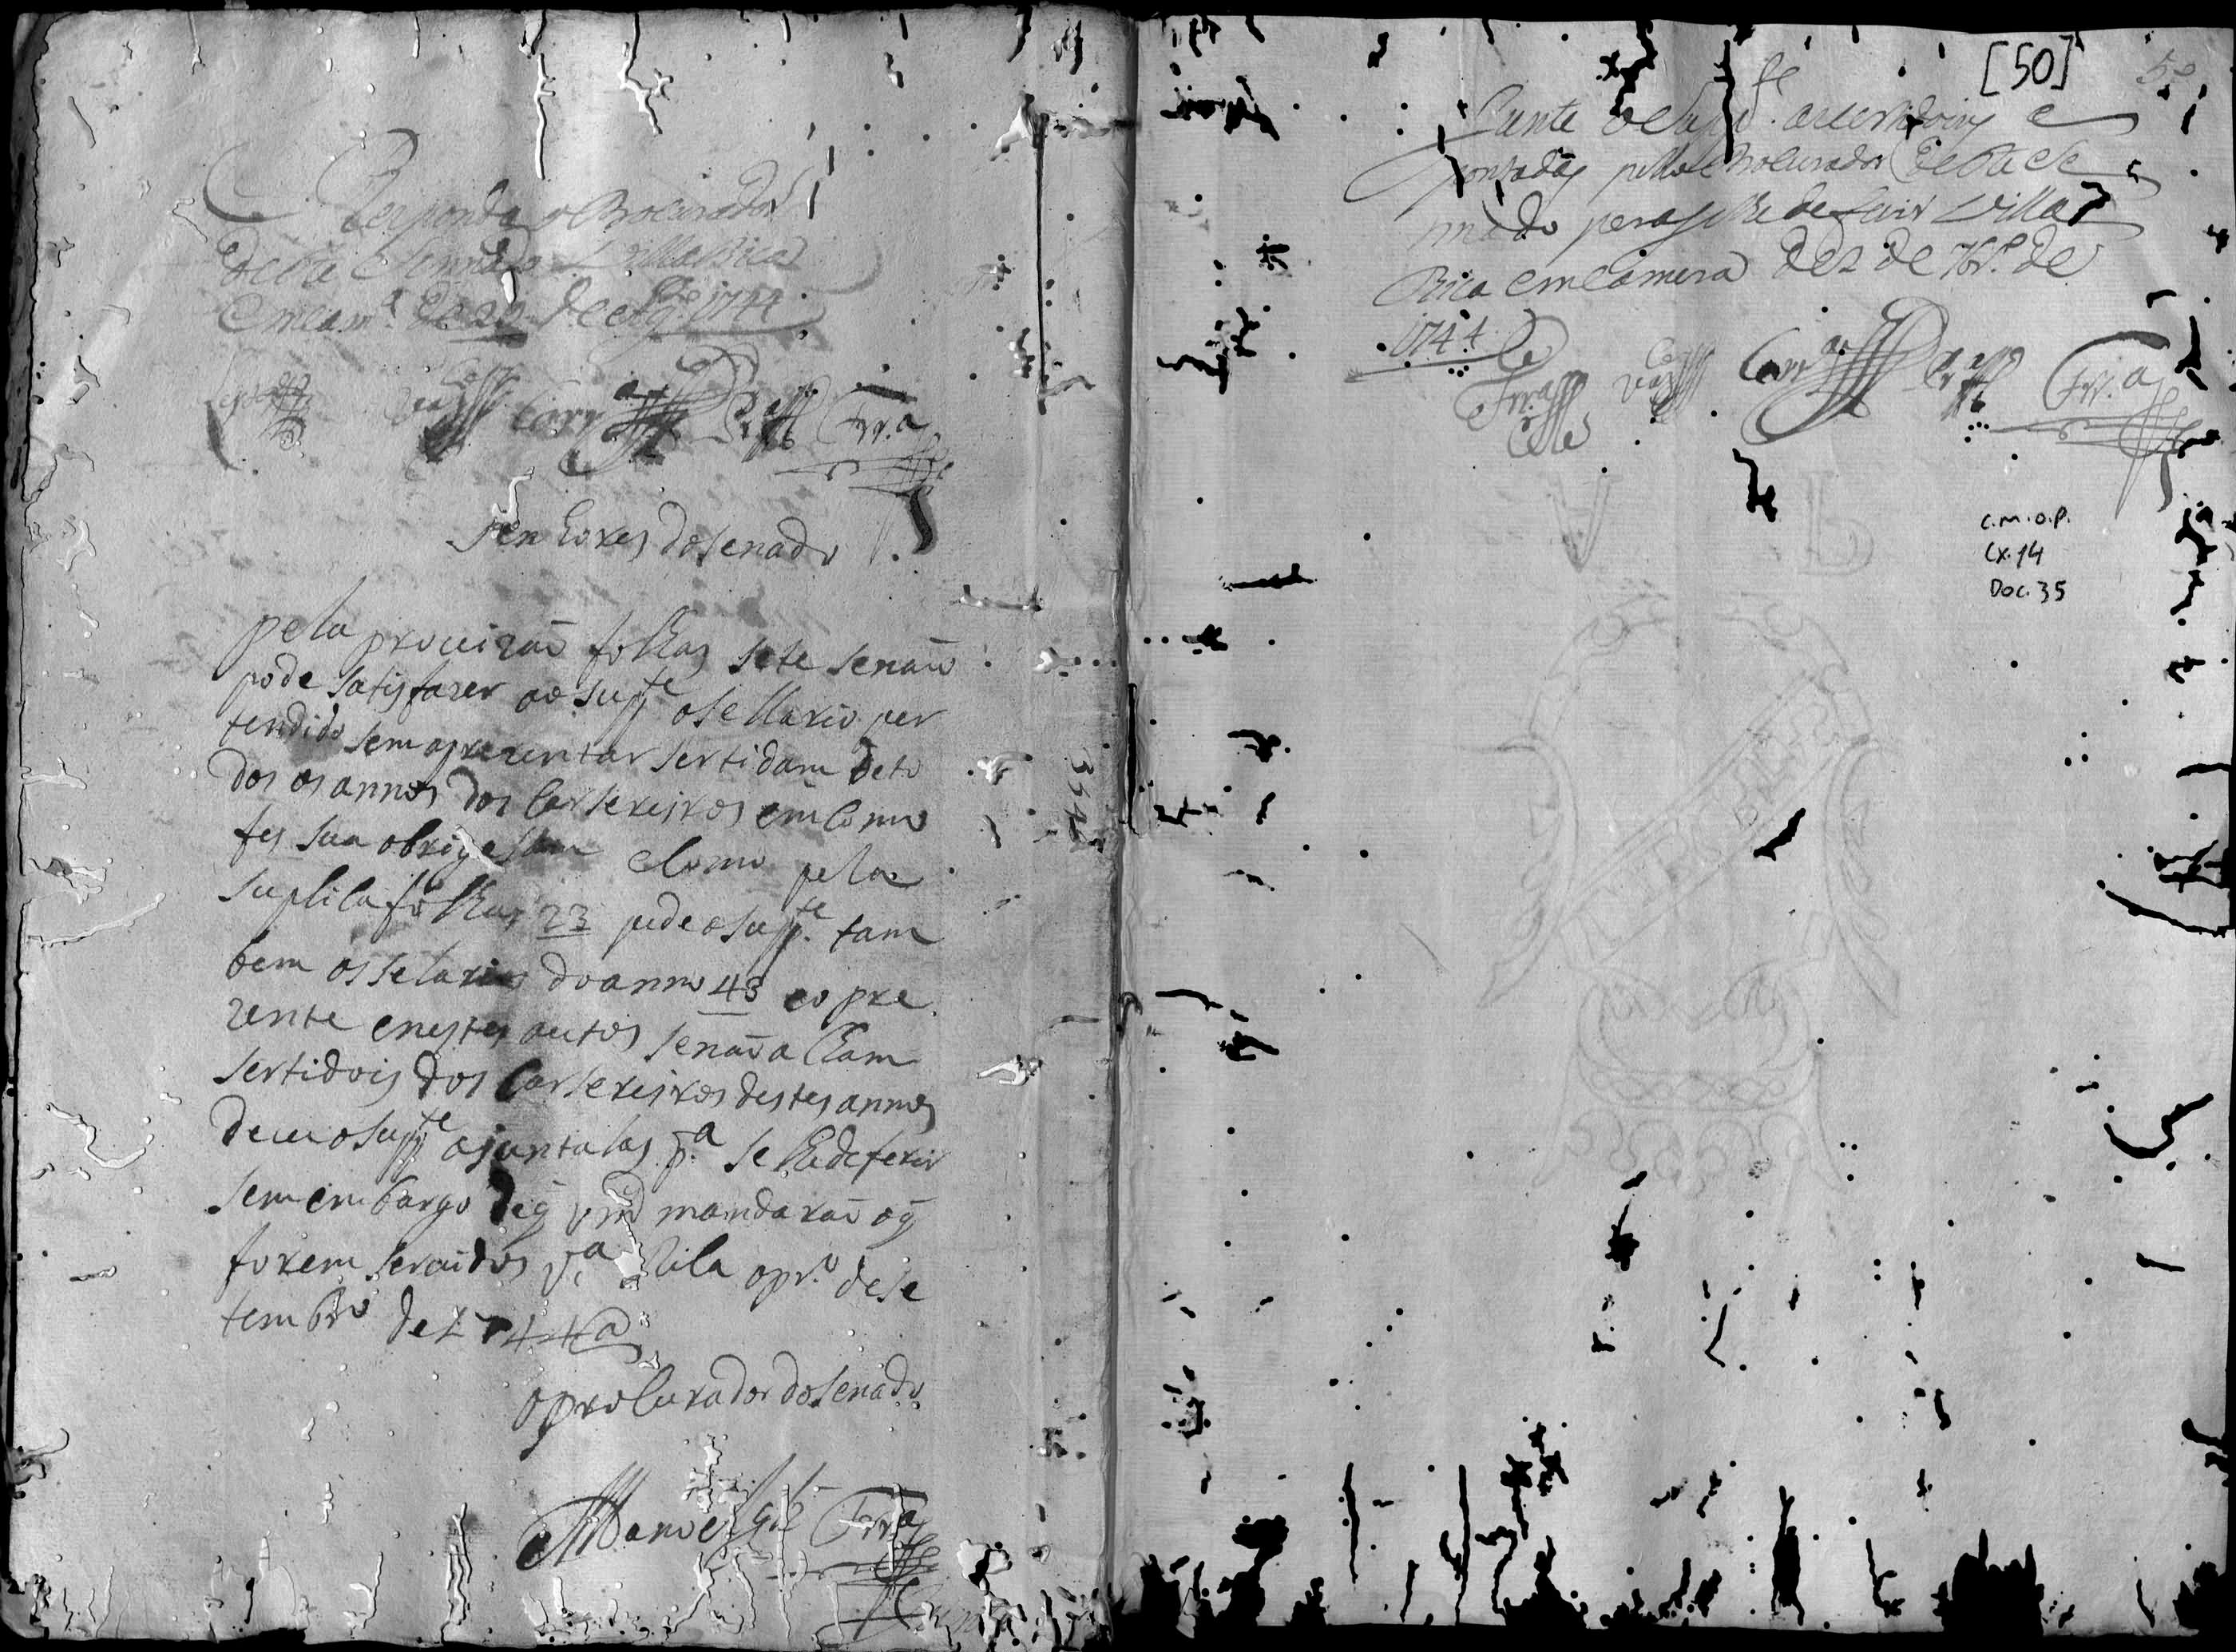 Responda o Procurador
deste Senado Villa Rica
em cam.ª de 29 de Ag.to 1744
Vas Corr.ª Ferr.ª
Senhores do senado
pela prouizaõ folhas sete senaõ
pode satisfazer ao supp.te o sellario per
tendido sem aprezentar sertidam de to
dos os annos dos Carsereiros em Como
fes sua obrigasam e Como pela
suplica folhas 23 pede o supp.te tam
bem os selarios do anno 43 e o pre
zente e nestes autos senaõ acham
sertidois dos Carsereiros destes annos
deue o supp.te ajuntalas p.ª se lhe deferir
sem embargo de q̃ vm.d mandaraõ o q̃
forem seruidos V.ª Rica o pr.º de se
tembro de 1744ª
o procurador do senado
Manoel Ferr.ª
[50]
50
Junte o Supp.te as certidoins a
pontadas pello Procurador deste Se
nado pera se lhe deferir Villa
Rica em Camera de 2 de 7br.º de
1744
Vas Corr.ª Ferr.ª
C.M.O.P.
CX.14
DOC.35